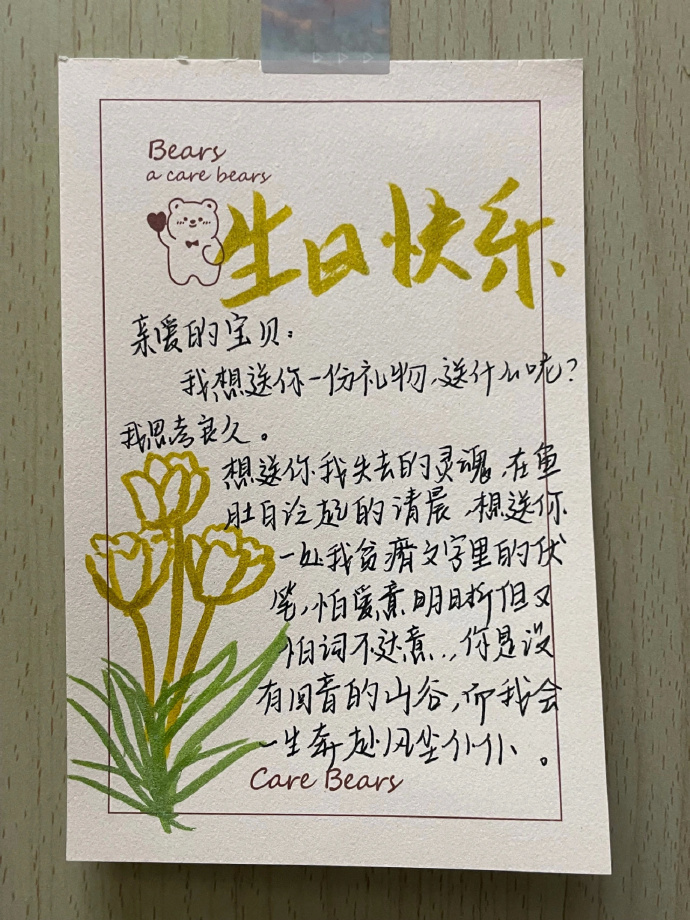 Bears
a care bears
生日快乐
亲爱的宝贝:
我想送你一份礼物,送什么呢?
我思考良久。
想送你我失去的灵魂,在鱼
肚白泛起的清晨,想送你
一处我贫瘠文字里的伏
笔,怕爱意明晰但又
怕词不达意..,你是没
有回音的山谷,而我会
一生奔赴风尘仆仆。
Care Bears